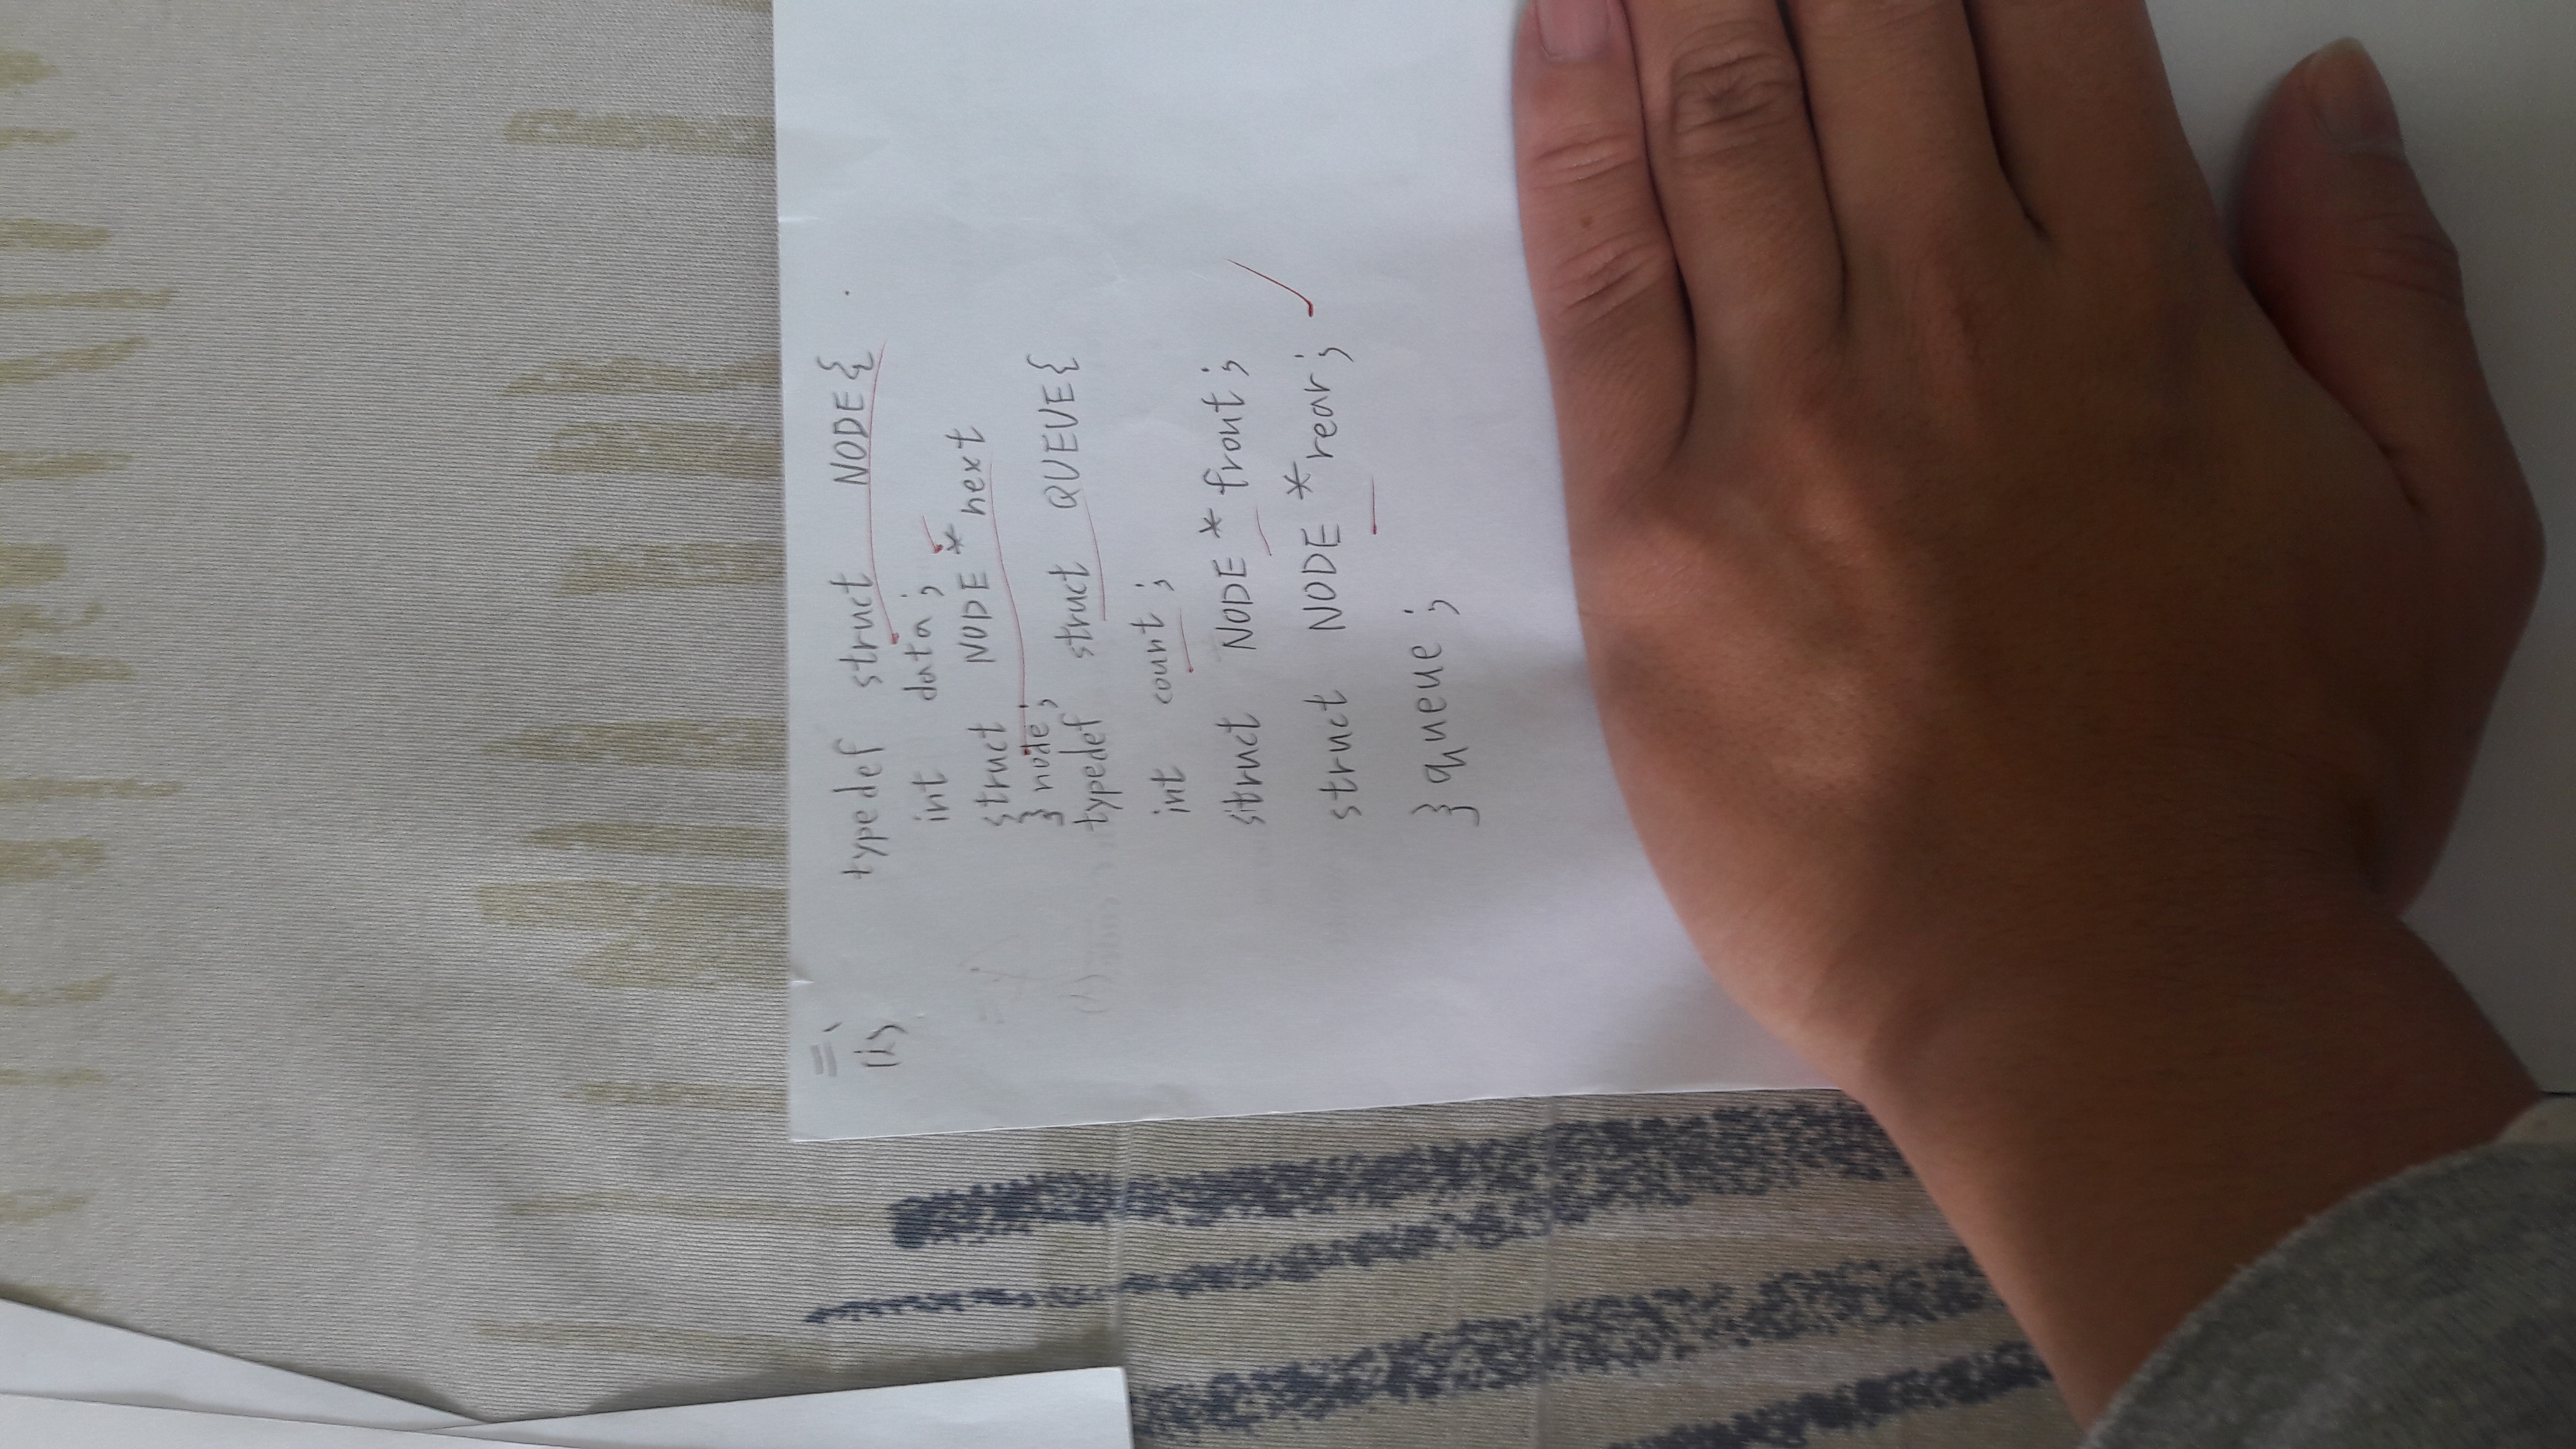 二、
(1) typedef struct NODE{
int data;
struct NODE *next
} node;
typedef struct QUEUE{
int count;
struct NODE *front;
struct NODE *rear;
} queue;